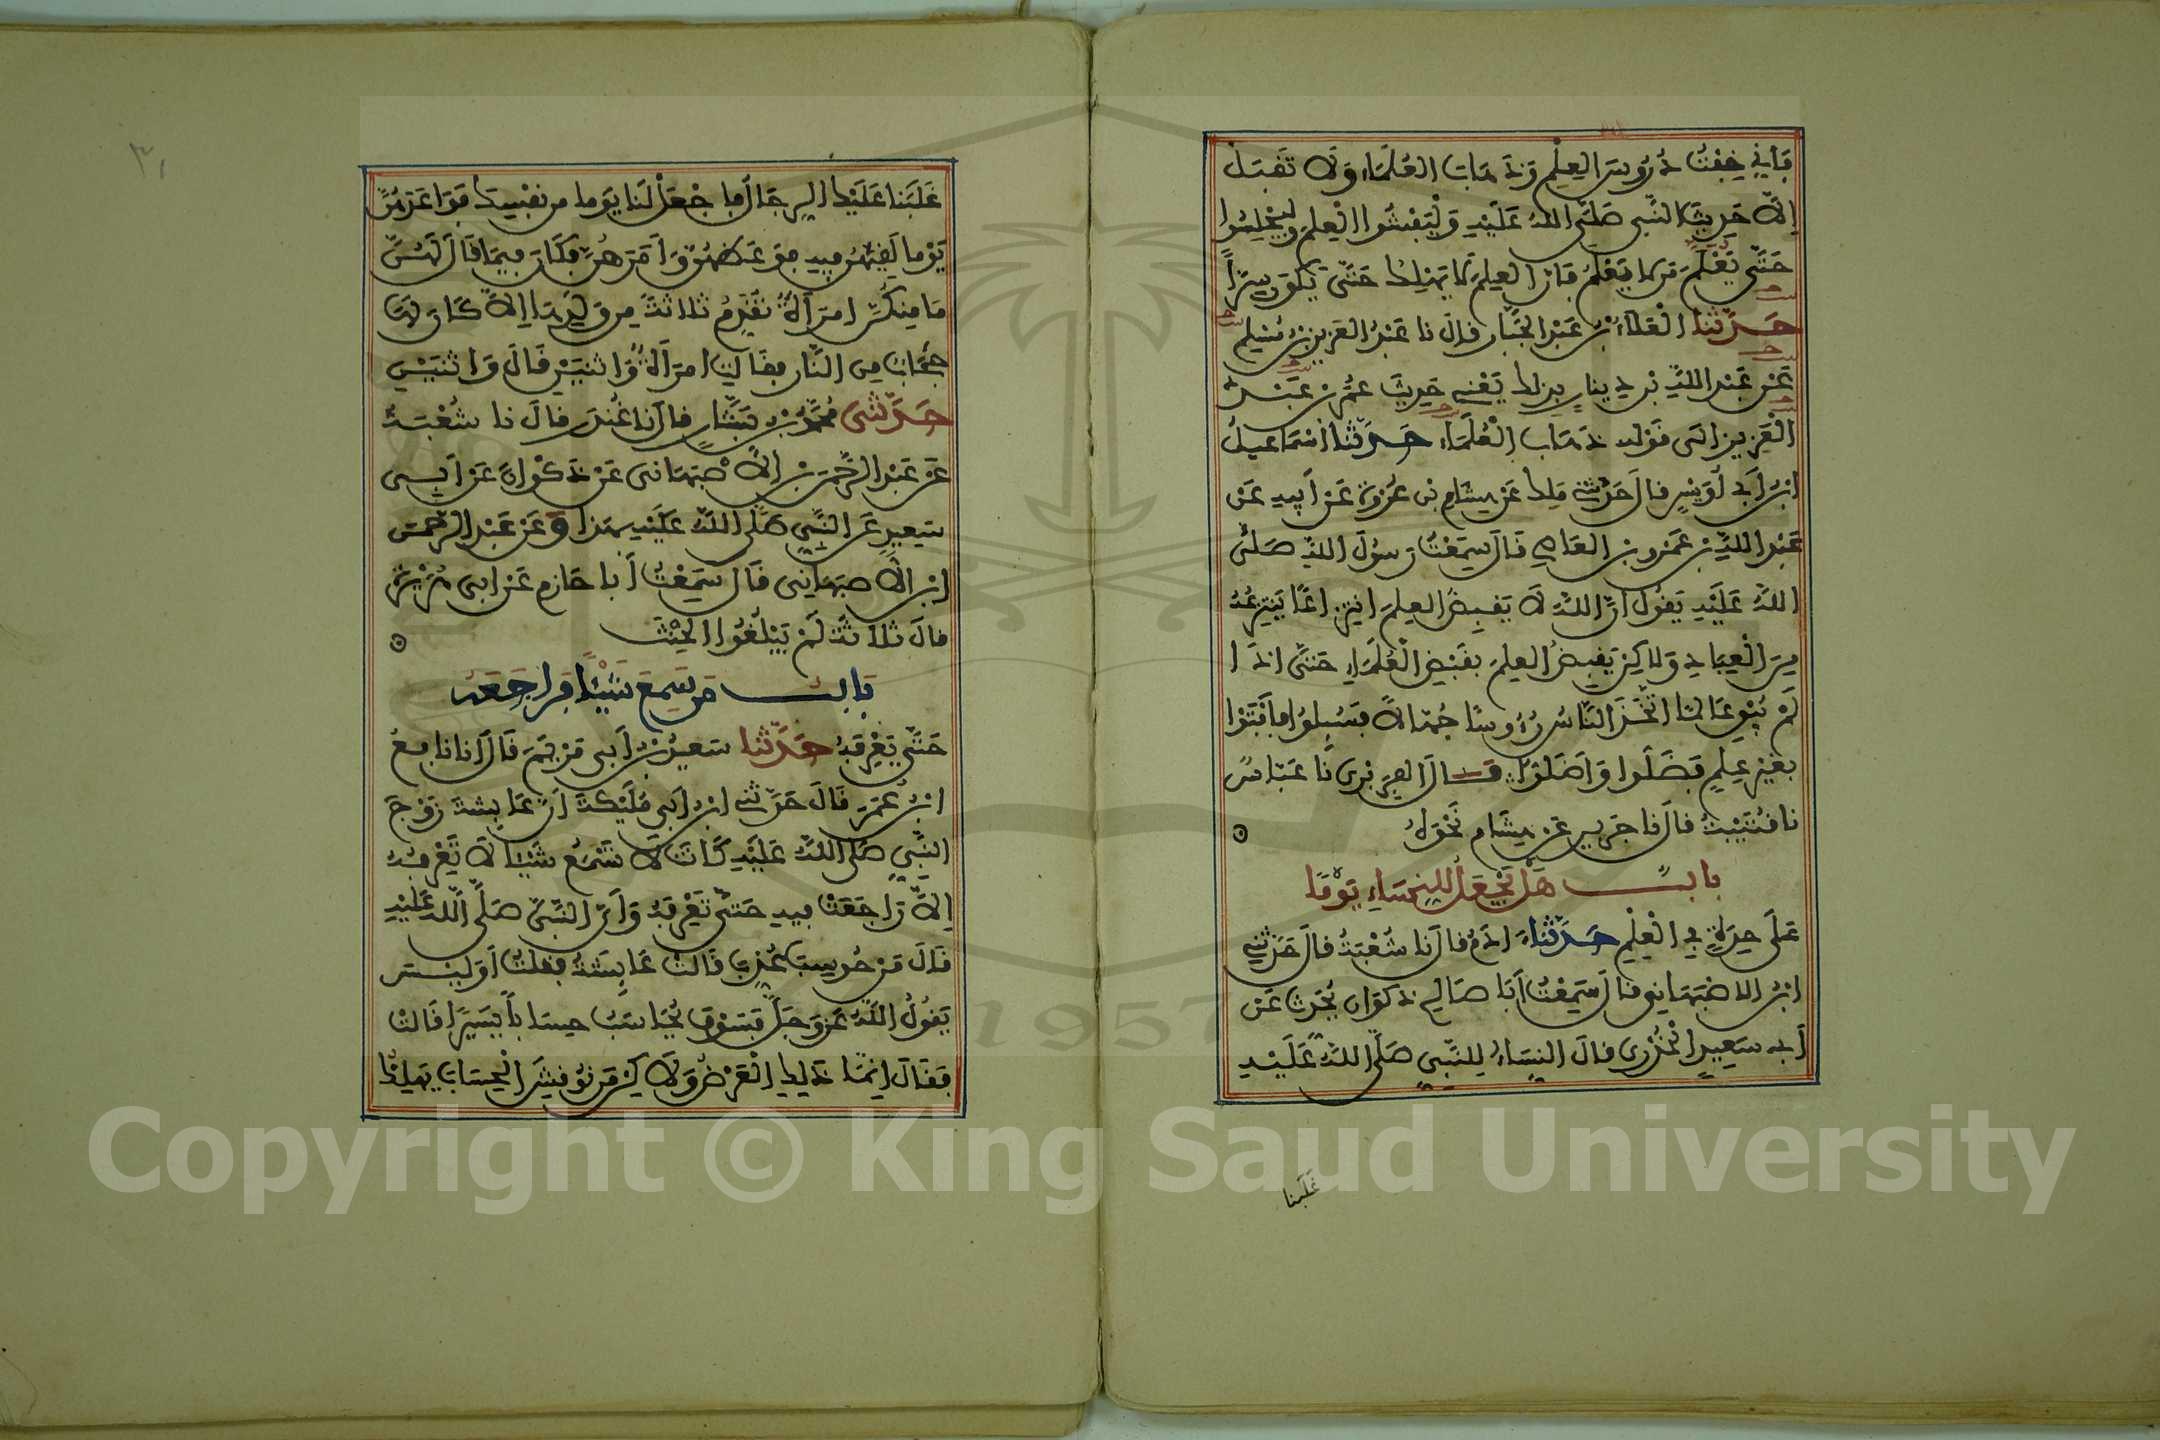 فإني خفت دروس العلم وذهاب العلماء ولا تقبل
إلا حديث النبي صلى الله عليه وليفشوا العلم وليجلسوا
حتى يعلم من لا يعلم فإن العلم لا يهلك حتى يكون سرا
حدثنا العلاء بن عبد الجبار قال نا عبد العزيز بن مسلم
عن عبد الله بن دينار بذلك يعني حديث عمر بن عبد
العزيز إلى قوله ذهاب العلماء حدثنا إسماعيل
ابن أبي أويس قال حدثني ملك عن هشام بن عروة عن أبيه عن
عبد الله بن عمرو بن العاص قال سمعت رسول الله صلى
الله عليه يقول إن الله لا يقبض العلم انتزاعا ينتزعه
من العباد ولاكن يقبض العلم بقبض العلماء حتى اذا
لم يبق عالما اتخذ الناس رءوسا جهالا فسئلوا فأفتوا
بغير علم فضلوا وأضلوا قال الفربري نا عباس
نا قتيبة قال نا جرير عن هشام نحوه
باب هل يجعل للنساء يوما
على حدة في العلم حدثنا ءادم قال نا شعبة قال حدثني
ابن الاصبهاني قال سمعت أبا صالح ذكوان يحدث عن
أبي سعيد الخدري قال النساء للنبي صلى الله عليه
غلبنا
٣١
غلبنا عليك الرجال فاجعل لنا يوما من نفسك فواعدهن
يوما لقيهن فيه فوعظهن وأمرهن فكان فيما قال لهن
ما منكن امرأة تقدم ثلاثة من ولدها إلا كان لها
حجابا من النار فقالت امرأة واثنين قال واثنين
حدثني محمد بن بشار قال نا غندر قال نا شعبة
عن عبد الرحمن بن الأصبهاني عن ذكوان عن أبي
سعيد عن النبي صلى الله عليه بهذا وعن عبد الرحمن
ابن الأصبهاني قال سمعت أبا حازم عن ابي هريرة
قال ثلاثة لم يبلغوا الحنث
باب من سمع شيئا فراجعه
حتى يعرفه حدثنا سعيد بن أبي مريم قال انا نافع
ابن عمر قال حدثني ابن أبي مليكة أن عايشة زوج
النبي صلى الله عليه كانت لا تسمع شيئا لا تعرفه
إلا راجعت فيه حتى تعرفه وأن النبي صلى الله عليه
قال من حوسب عذب قالت عايشة فقلت أوليس
يقول الله عز وجل فسوف يحاسب حسابا يسيرا قالت
فقال إنما ذلك العرض ولاكن من نوقش الحساب يهلك
Copyright © King Saud University
1957